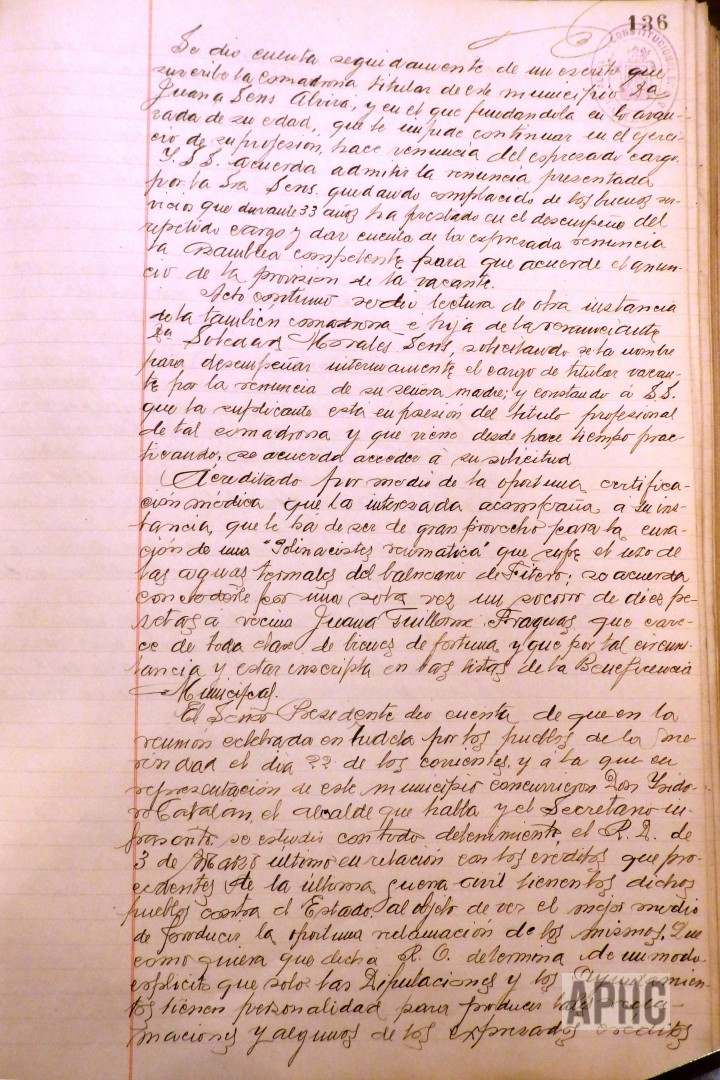 136
Se dio cuenta seguidamente de un escrito que
suscribe la comadrona titular de este municipio Dª
Juana Sens Alvira, y en el que fundandola en lo avan-
zada de su edad, que le impide continuar en el ejerci-
cio de su profesión, hace renuncia del expresado cargo.
Y S.S. acuerda admitir la renuncia presentada
por la Sra Sens. quedando complacido de los buenos ser-
vicios que durante 33 años ha prestado en el desempeño del
repetido cargo y dar cuenta de la expresada renuncia
la Asamblea competente para que acuerde el anun-
cio de la provisión de la vacante.
Acto continuo se dio lectura de otra instancia
de la tambien comadrona é hija de la renunciante
Dª Soledad Morales Sens, solicitando se la nombre
para desempeñar interinamente el cargo de titular vacan-
te por la renuncia de su señora madre; y constando á S.S.
que la suplicante está en posesión del titulo profesional
de tal comadrona y que viene desde hace tiempo prac-
ticando, se acuerda acceder á su solicitud
Acreditado por medio de la oportuna certifica-
ción médica que la interesada acompaña a su ins-
tancia, que le há de ser de gran provecho para la cura-
ción de una reumática" que sufre el uso de
las aguas termales del balneario de Fitero; se acuerda
concederle por una sola vez un socorro de diez pe-
setas á vecina Juana Guillorme Fraguas que care-
ce de toda clase de bienes de fortuna, y que por tal circuns-
tancia y estar inscripta en las listas de la Beneficencia
Municipal.
El Señor Presidente dio cuenta de que en la
reunión celebrada en Tudela por los pueblos de la me-
rindad el dia 22 de los corrientes, y á la que en
representación de este municipio concurrieron Don Ysido-
ro Catalan, el alcalde que habla y el Secretario in-
frascrito, se estudió con todo detenimiento, el R. D. de
3 de Marzo último en relación con los creditos que pro-
cedentes de la última guerra civil tienen los dichos
pueblos contra el Estado, al objeto de ver el mejor medio
de producir la oportuna reclamación de los mismos. Que
como quiera que dicha R. O. determina de un modo
explicito que solo las Diputaciones y los Ayuntamien-
tos tienen personalidad para producir tales recla-
maciones y algunos de los expresados creditos
APHC